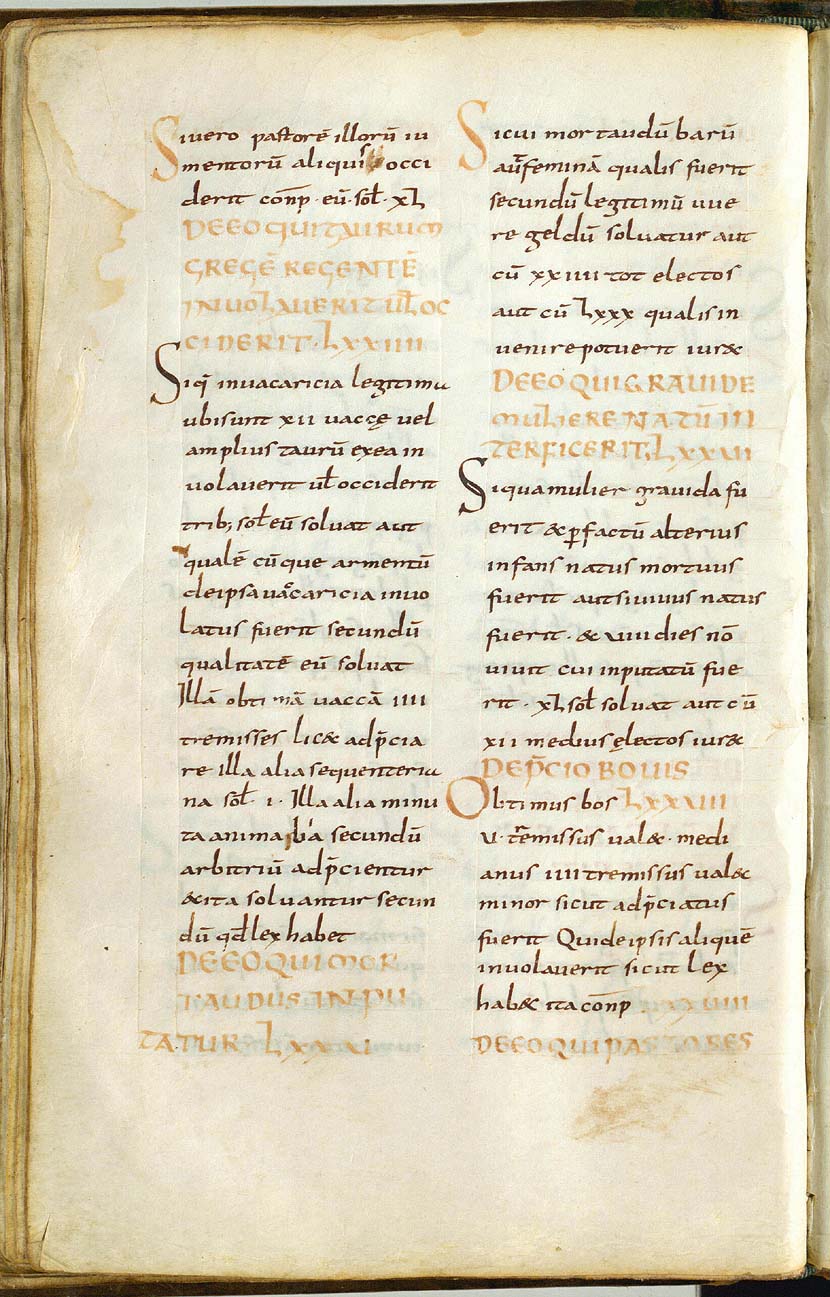 Sivero pastorē illorū iu
mentorū aliquis occi
derit conp̄ · eū · sol̄ · xl
DE EO QUI TAURUM
GREGĒ REGENTĒ
INVOLAVERIT UL̄ OC
CIDERIT · LXXIIII
Siq' in vacaricia legitima
ubi sunt xii vaccę vel
amplius taurū ex ea in
volaverit ul̄ occiderit
trib; sol̄ eū solvat aut
qualē cūque armentū
de ipsa vacaricia invo
latus fuerit secundū
qualitatē eū solvat
Illā obtimā vaccā iiii
tremisses lic& adp̄cia
re illa alia sequenteria
na sol̄ · i · Illa alia minu
ta anima secundū
arbitriū adp̄cientur
& ita solvantur secun
dū qd̄ lex habet
DE EO QUI MOR
TAUDUS INPU
TATUR LXXXI
Si cui mortaudū barū
aut feminā qualis fuerit
secundū legitimū uue
re geldū solvatur aut
cū xxiiii tot electos
aut cū lxxx qualis in
venire potuerit iur&
DE EO QUI GRAVIDE
MULIERE NATŪ IN
TERFICERIT LXXXII
Si qua mulier gravida fu
erit & p̱ factū alterius
infans natus mortuus
fuerit aut si vivus natus
fuerit · & viiii dies nō
vivit cui inputatū fue
rit · xl sol̄ solvat aut cū
xii medius ęlectos iur&
DE P̄CIO BOVIS
Obtimus bos LXXXIII
v · tremissus val& · medi
anus iiii tremissus val&
minor sicut adp̄ciatus
fuerit Qui de ipsis aliquē
involaverit sicut lex
hab& ita conp̄
DE EO QUI PASTORES